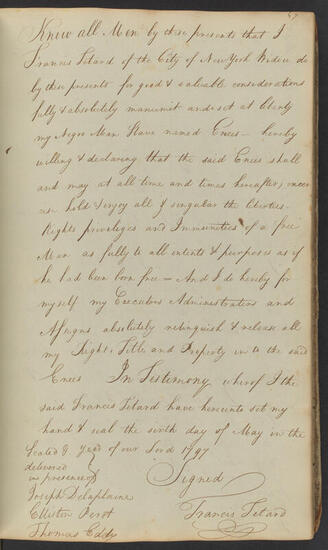 67
Know all Men by these presents that I
Francis Tetard of the City of New York Widow do
by these presents for good & valuable considerations
fully & absolutely manumit and set at liberty
my Negro Man Slave named Enees - hereby
willing & declaring that the said Enees shall
and may at all time and times hereafter, exer
cise hold & enjoy all & singular the liberties
Rights privileges and Immunities of a free
Man as fully to all intents & purposes as if
he had been born free - And I do hereby for
myself my Executors Administrators and
Assigns absolutely relinquish & release all
my Right, Title and Property in to the said
Enees In Testimony whereof I the
said Francis Tetard have hereunto set my
hand & seal the sixth day of May in the
year of our Lord 1797
Sealed &
delivered
in presence of
Signed
Joseph Delaplaine
Elliston Perot
Francis Tetard
Thomas Eddy